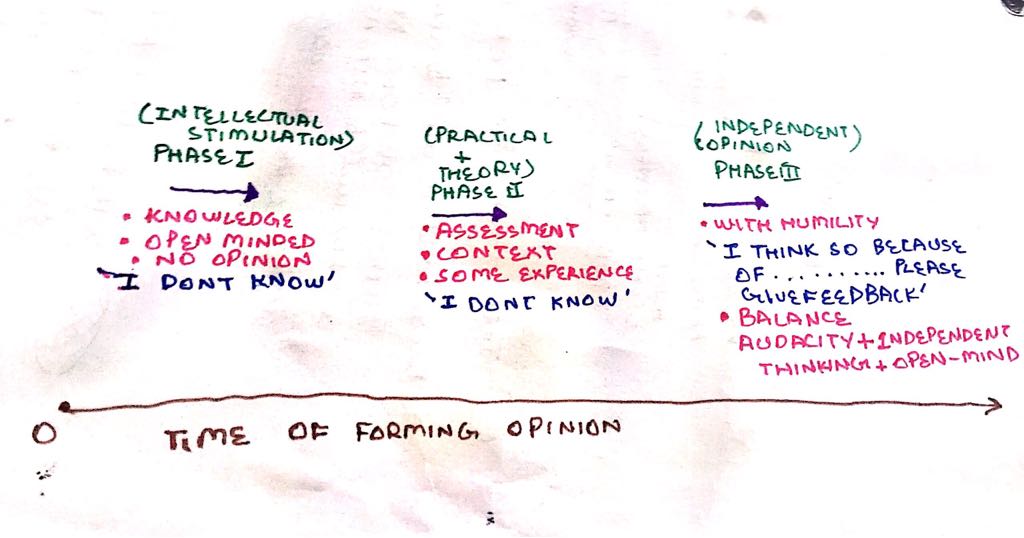 (INTELLECTUAL
STIMULATION)
PHASE I
• KNOWLEDGE
• OPEN MINDED
• NO OPINION
'I DONT KNOW'
(PRACTICAL
+
THEORY)
PHASE II
• ASSESSMENT
• CONTEXT
• SOME EXPERIENCE
'I DONT KNOW'
(INDEPENDENT)
(OPINION
PHASE III
• WITH HUMILITY
'I THINK SO BECAUSE
OF .......... PLEASE
GIVE FEEDBACK'
• BALANCE
AUDACITY + INDEPENDENT
THINKING + OPEN-MIND
O
TIME OF FORMING OPINION